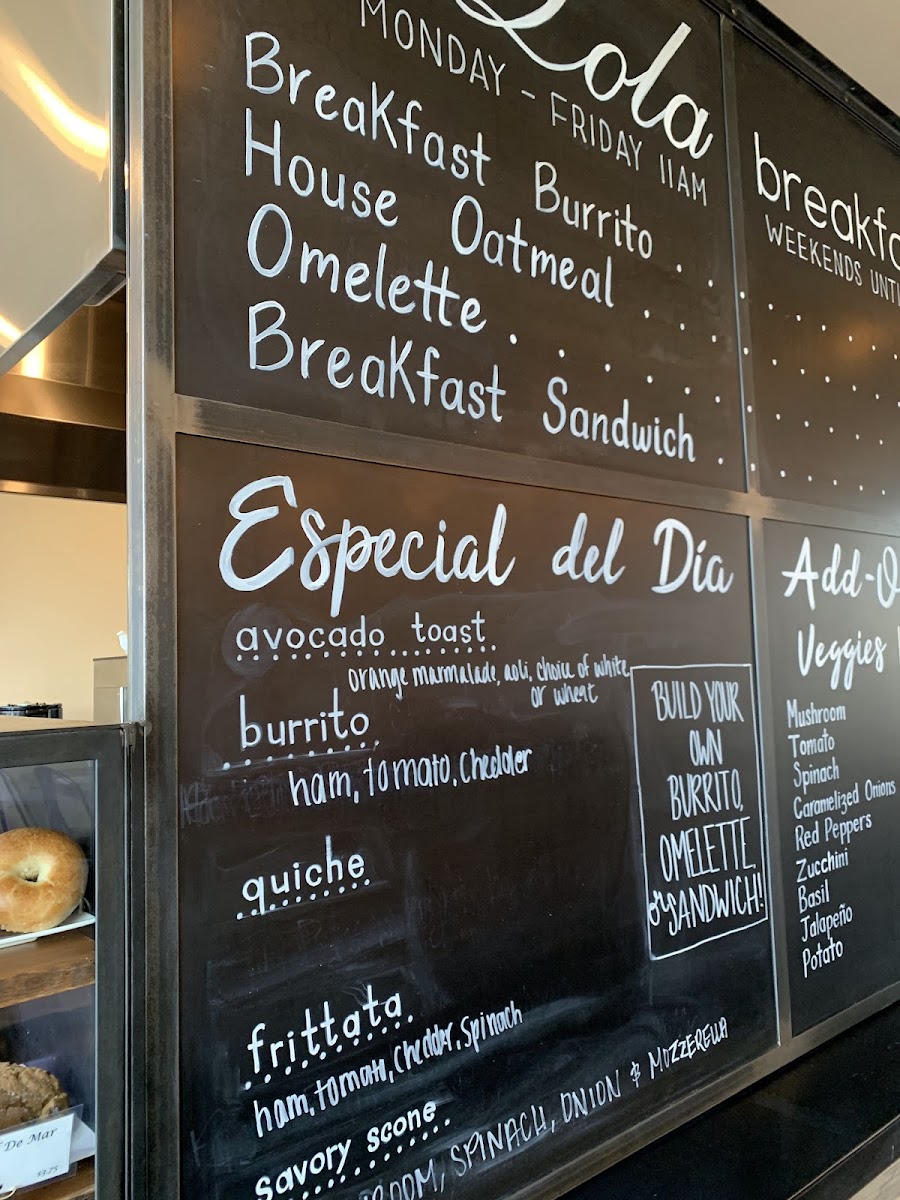 Lola
MONDAY - FRIDAY 11AM
Breakfast Burrito . .
House Oatmeal . . .
Omelette . . . . . .
Breakfast Sandwich .
breakfa
WEEKENDS UNTI
Especial del Día
avocado toast
orange marmalade, aoli, choice of white
or wheat
burrito
ham, tomato, cheddar
quiche
frittata
ham, tomato, cheddar, spinach
savory scone
ROOM, SPINACH, ONION & MOZZERELLA
BUILD YOUR
OWN
BURRITO,
OMELETTE
or SANDWICH!
Add-O
Veggies
Mushroom
Tomato
Spinach
Caramelized Onions
Red Peppers
Zucchini
Basil
Jalapeño
Potato
De Mar
$3.75